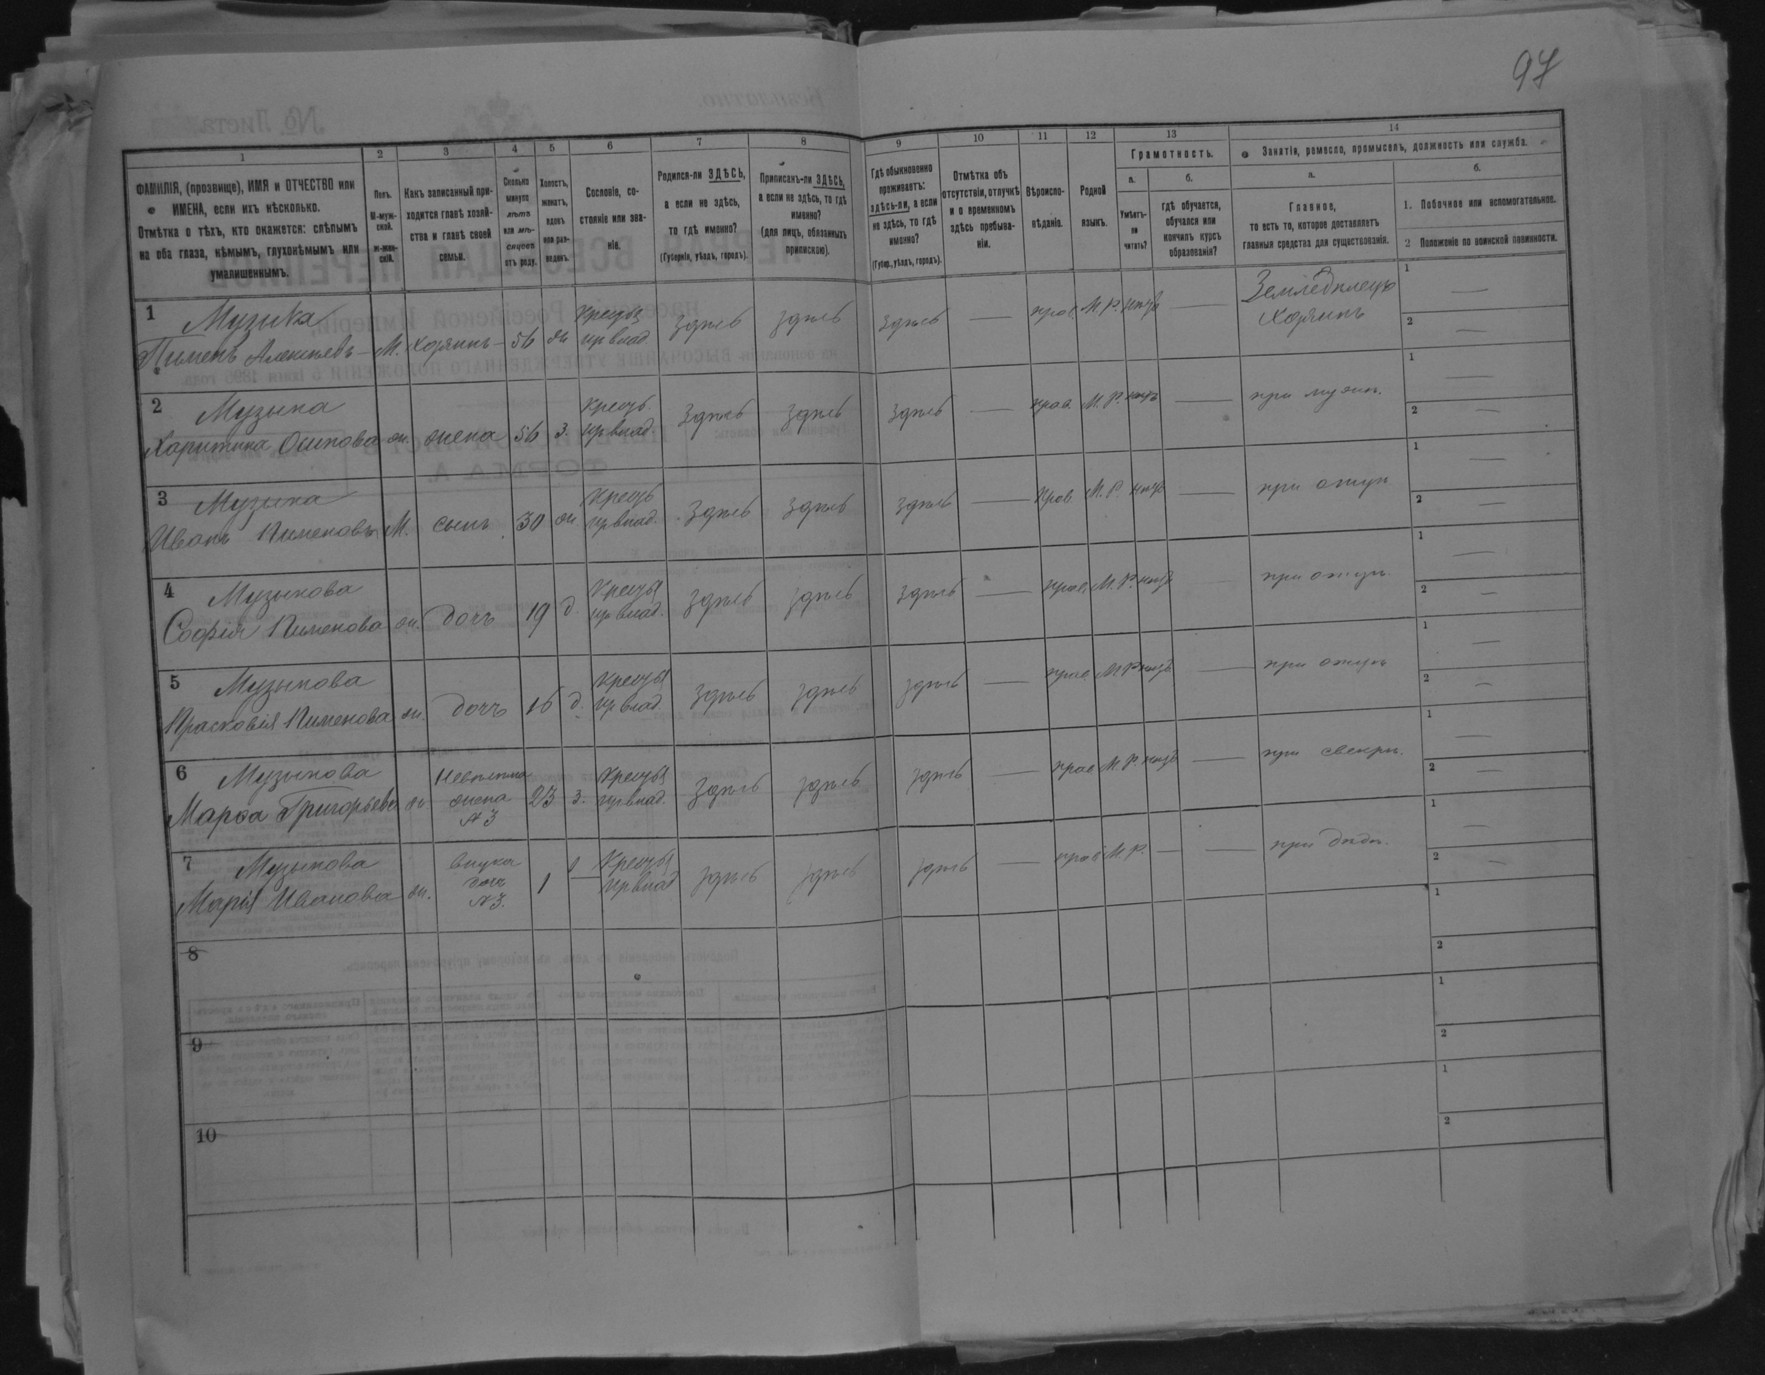 97
1 2 3 4 5 6 7 8 9 10 11 12 13 14
ФАМИЛІЯ, (прозвище), ИМЯ и ОТЧЕСТВО или
ИМЕНА, если ихъ нѣсколько.
Отмѣтка о тѣхъ, кто окажется: слѣпымъ
на оба глаза, нѣмымъ, глухонѣмымъ или
умалишеннымъ.
Полъ.
М-муж-
ской.
Ж-жен-
скій.
Какъ записанный при-
ходится главѣ хозяй-
ства и главѣ своей
семьи.
Сколько
минуло
лѣтъ
или мѣ-
сяцевъ
отъ роду.
Холостъ,
женатъ,
вдовъ
или раз-
веденъ.
Сословіе, со-
стояніе или зва-
ніе.
Родился-ли ЗДѢСЬ,
а если не здѣсь,
то гдѣ именно?
(Губернія, уѣздъ, городъ).
Приписанъ-ли ЗДѢСЬ,
а если не здѣсь, то гдѣ
именно?
(для лицъ, обязанныхъ
припискою).
Гдѣ обыкновенно
проживаетъ:
здѣсь-ли, а если
не здѣсь, то гдѣ
именно?
(Губер., уѣздъ, городъ).
Отмѣтка объ
отсутствіи, отлучкѣ
и о временномъ
здѣсь пребыва-
ніи.
Вѣроиспо-
вѣданіе.
Родной
языкъ.
Грамотность.
а.
Умѣетъ-
ли
читать?
б.
гдѣ обучается,
обучался или
кончилъ курсъ
образованія?
Занятія, ремесло, промыселъ, должность или служба.
а.
Главное,
то есть то, которое доставляетъ
главныя средства для существованія.
б.
1. Побочное или вспомогательное.
2 Положеніе по воинской повинности.
1 Музыка Крещья Земледѣлецъ 1 —
Пименъ Алексѣевъ — М. Хозяинъ — 56 ж здѣсь здѣсь здѣсь — прав М.Р. нѣтъ — Хозяинъ 2 —
2 Музыка 1 —
Харитина Осипова ж. жена 56 з. здѣсь здѣсь здѣсь — прав М.Р. нѣтъ — при мужѣ. 2 —
3 Музыка 1 —
Иванъ Пименовъ М. сынъ 30 ж здѣсь здѣсь здѣсь — прав М.Р. нѣтъ — при отцѣ 2 —
4 Музыкова 1 —
Софія Пименова ж. дочь 19 д. здѣсь здѣсь здѣсь — прав М.Р. нѣтъ — при отцѣ 2 —
5 Музыкова 1 —
Прасковія Пименова ж. дочь 16 д. здѣсь здѣсь здѣсь — прав М.Р. нѣтъ — при отцѣ 2 —
6 Музыкова Невѣстка 1 —
Марѳа Григорьева ж жена 23 з. здѣсь здѣсь здѣсь — прав М.Р. нѣтъ — при свекрѣ. 2 —
№ 3
7 Музыкова внука 1 —
Марія Иванова ж. дочь 1 — здѣсь здѣсь здѣсь — прав М.Р. — — при дѣдѣ. 2 —
№ 3.
8 1
2
9 1
2
10 1
2